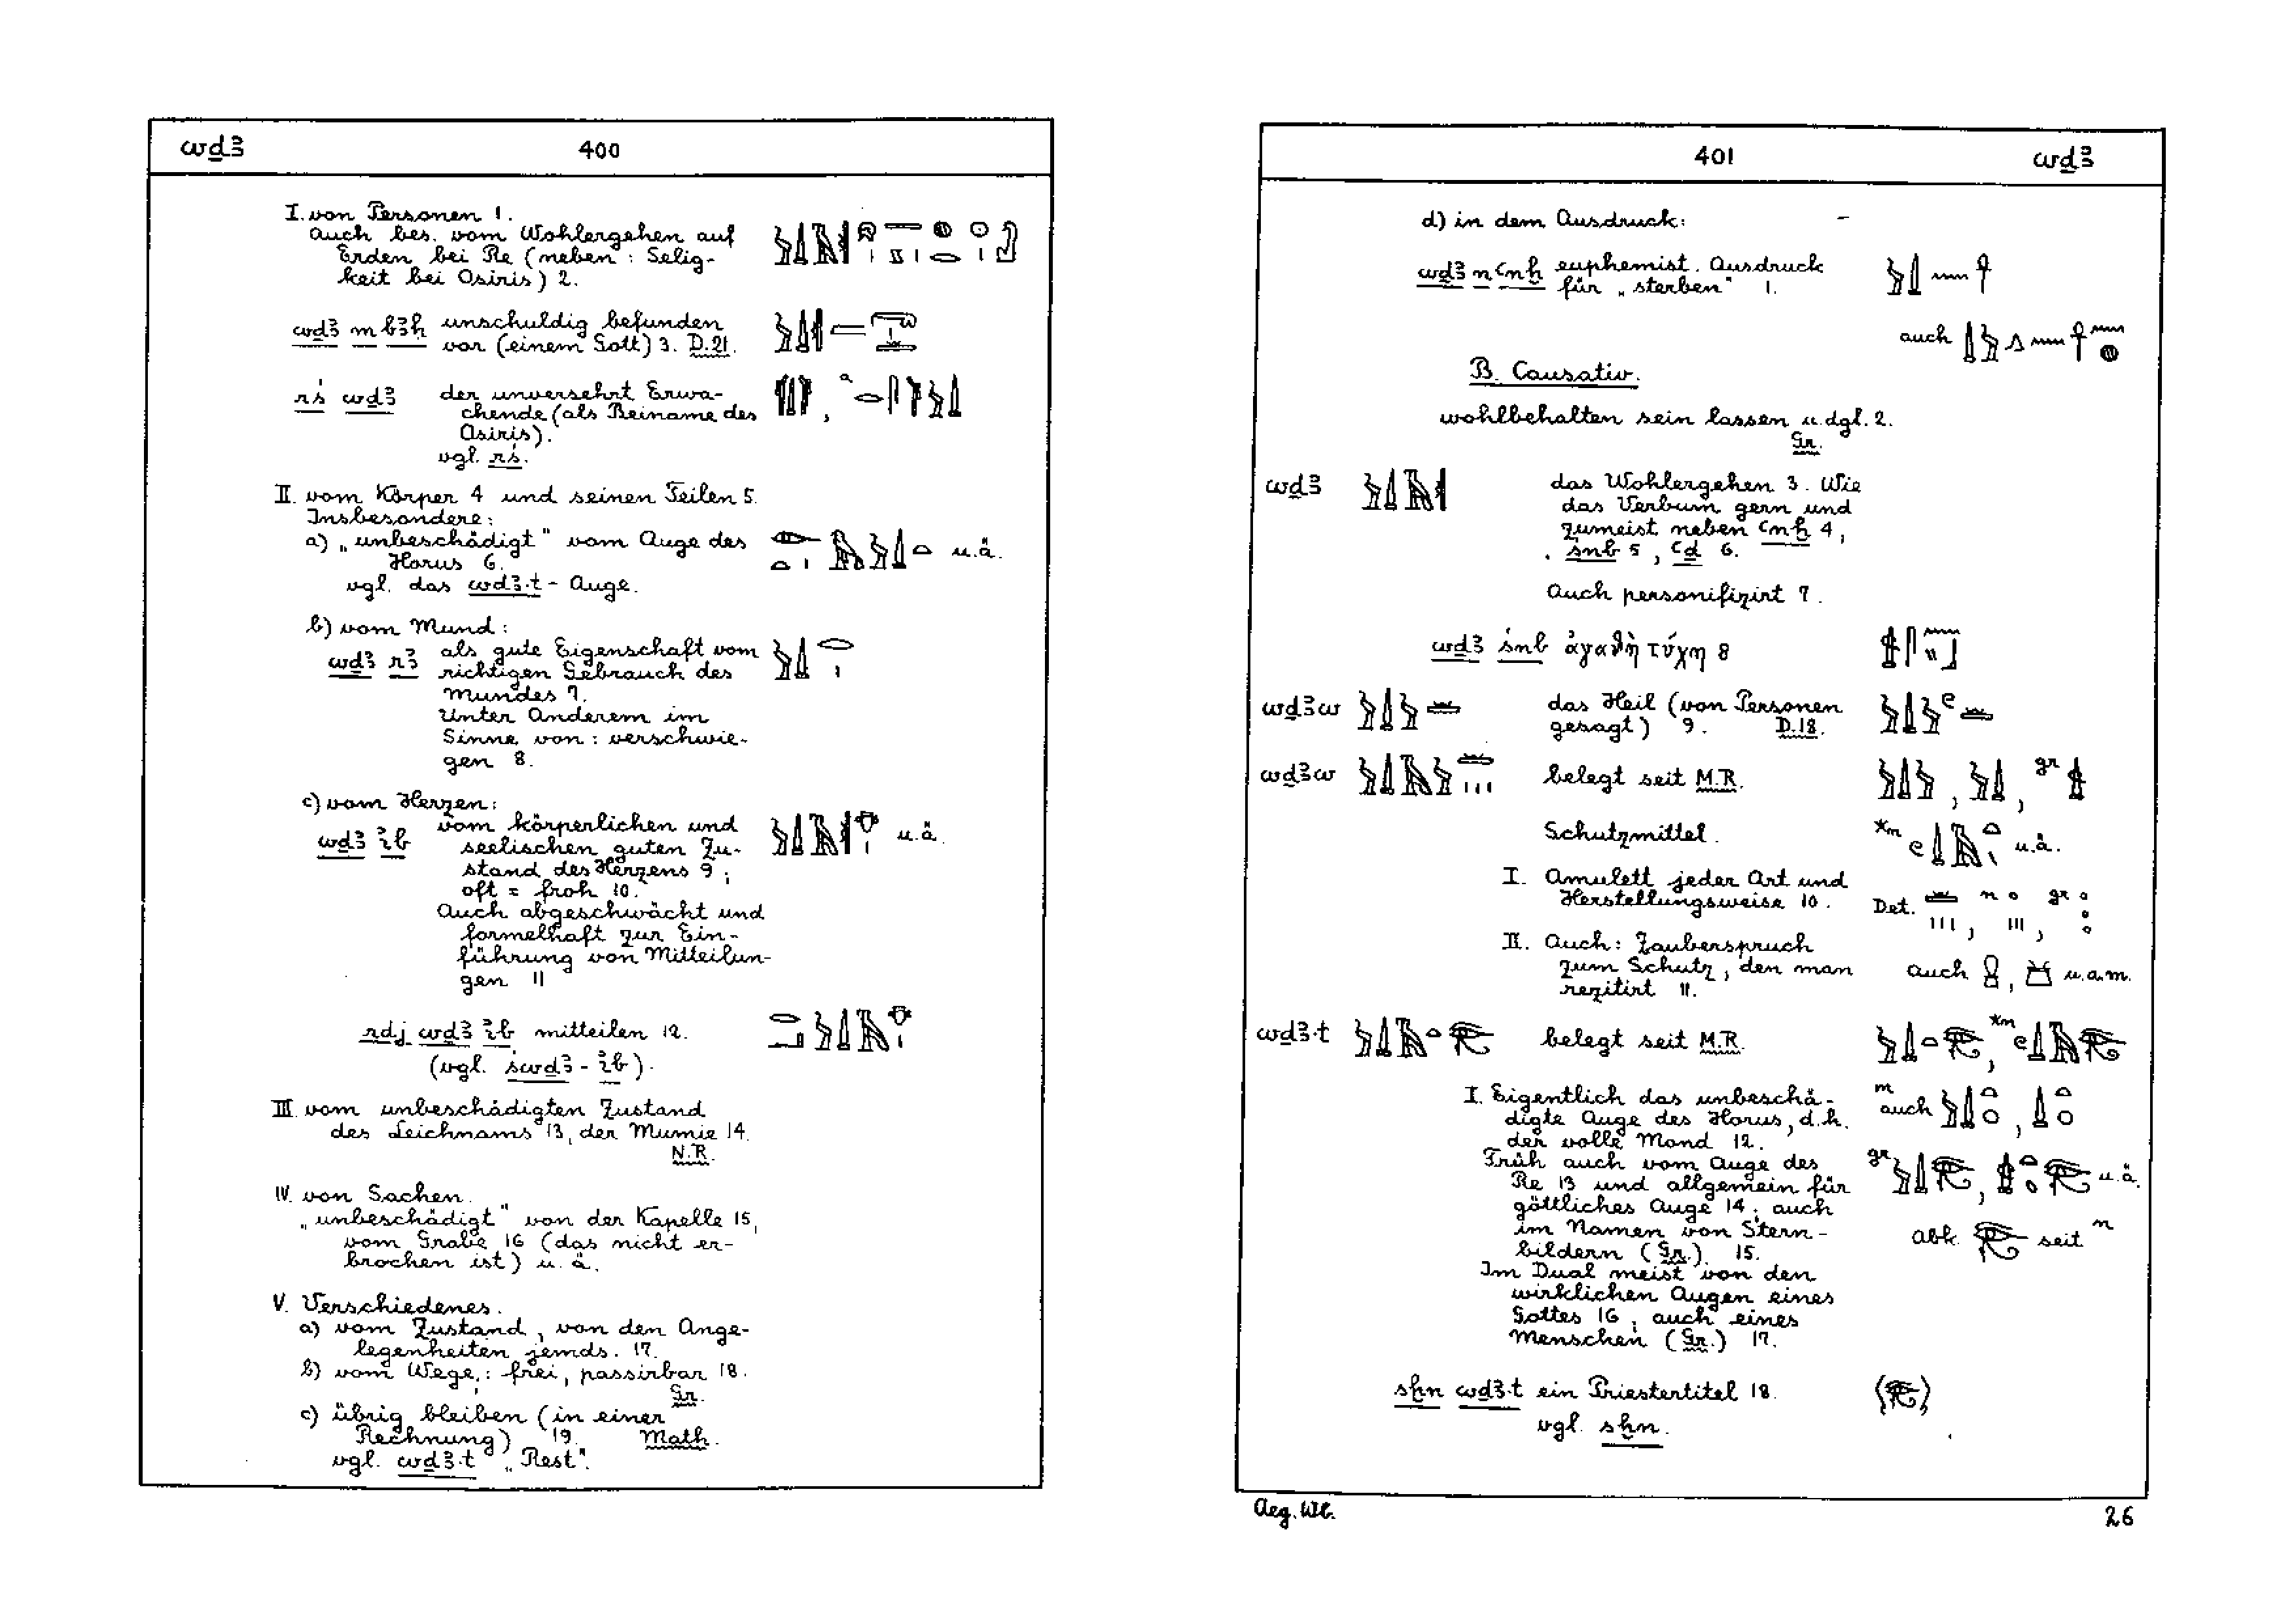 wḏꜣ 400
I. von Personen 1.
auch bes. vom Wohlergehen auf
Erden bei Re (neben: Selig-
keit bei Osiris) 2.
wḏꜣ m bꜣḥ unschuldig befunden
vor (einem Gott) 3. D.21.
rś wḏꜣ der unversehrt Erwa-
chende (als Beiname des
Osiris).
vgl. rś.
II. vom Körper 4 und seinen Teilen 5.
Insbesondere:
a) „unbeschädigt" vom Auge des
Horus 6. u.ä.
vgl. das wḏꜣ.t - Auge.
b) vom Mund:
wḏꜣ rꜣ als gute Eigenschaft vom
richtigen Gebrauch des
Mundes 7.
Unter Anderem im
Sinne von: verschwie-
gen 8.
c) vom Herzen:
wḏꜣ ꞽb vom körperlichen und
seelischen guten Zu- u.ä.
stand des Herzens 9;
oft = froh 10.
Auch abgeschwächt und
formelhaft zur Ein-
führung von Mitteilun-
gen 11
rdj wḏꜣ ꞽb mitteilen 12.
(vgl. śwḏꜣ - ꞽb).
III. vom unbeschädigten Zustand
des Leichnams 13, der Mumie 14.
N.R.
IV. von Sachen.
„unbeschädigt" von der Kapelle 15,
vom Grabe 16 (das nicht er-
brochen ist) u. ä.
V. Verschiedenes.
a) vom Zustand, von den Ange-
legenheiten jemds. 17.
b) vom Wege: frei, passirbar 18.
Gr.
c) übrig bleiben (in einer
Rechnung) 19. Math.
vgl. wḏꜣ.t „Rest".
401 wḏꜣ
d) in dem Ausdruck:
wḏꜣ n ꜥnḫ euphemist. Ausdruck
für „sterben" 1.
auch
B. Causativ.
wohlbehalten sein lassen u. dgl. 2.
Gr.
wḏꜣ das Wohlergehen 3. Wie
das Verbum gern und
zumeist neben ꜥnḫ 4,
śnb 5, ꜥḏ 6.
Auch personifizirt 7.
wḏꜣ śnb ἀγαθὴ τύχη 8
wḏꜣw das Heil (von Personen
gesagt) 9. D.18.
wḏꜣw belegt seit M.R. gr
Schutzmittel. *m u.ä.
I. Amulett jeder Art und
Herstellungsweise 10. Det. n gr
II. Auch: Zauberspruch
zum Schutz, den man auch u.a.m.
rezitirt 11.
wḏꜣ.t belegt seit M.R. *m
I. Eigentlich das unbeschä- m
digte Auge des Horus, d.h. auch
der volle Mond 12.
Früh auch vom Auge des gr
Re 13 und allgemein für u.ä.
göttliches Auge 14; auch
im Namen von Stern- abk. seit n
bildern (Gr.) 15.
Im Dual meist von den
wirklichen Augen eines
Gottes 16, auch eines
Menschen (Gr.) 17.
sḫn wḏꜣ.t ein Priestertitel 18.
vgl. sḫn.
Aeg. Wb. 26